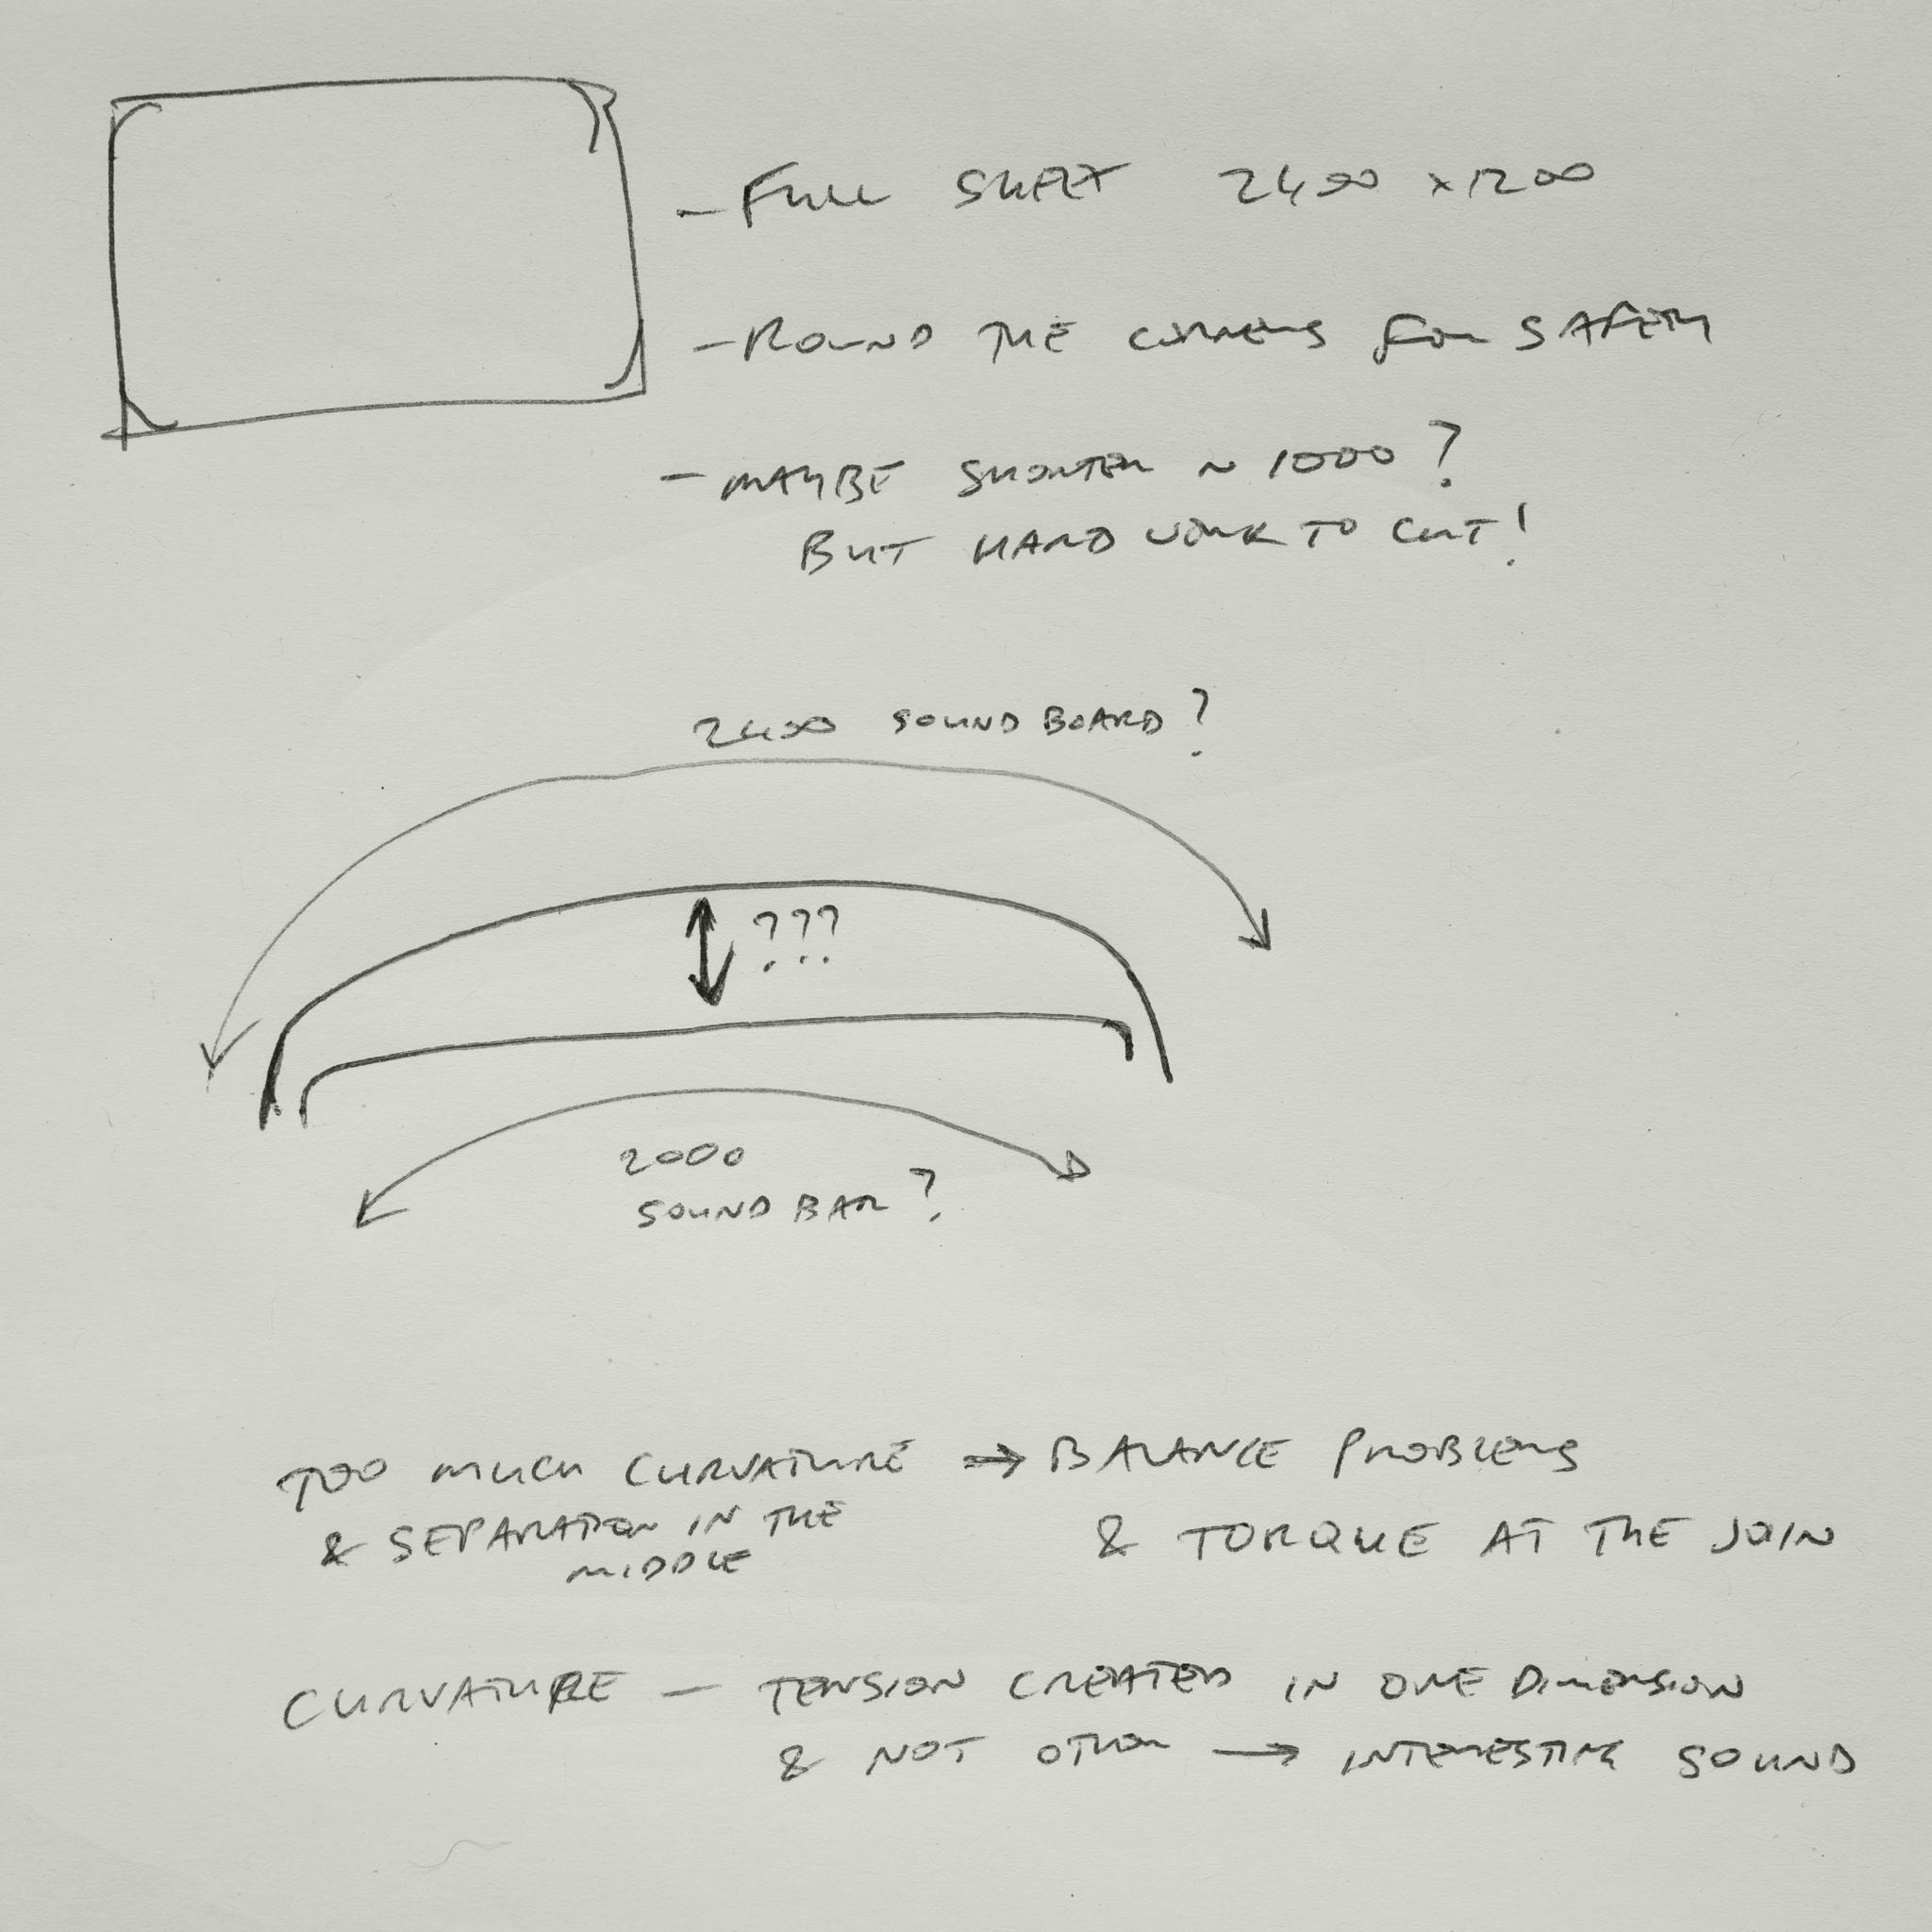 - FULL SHEET 2400 x 1200
- ROUND THE CORNERS FOR SAFETY
- MAYBE SHORTER ~ 1000 ?
BUT HARD WORK TO CUT!
2400 SOUND BOARD?
???
2000
SOUND BAR?
TOO MUCH CURVATURE → BALANCE PROBLEMS
& SEPARATION IN THE
MIDDLE
& TORQUE AT THE JOIN
CURVATURE - TENSION CREATED IN ONE DIMENSION
& NOT OTHER → INTERESTING SOUND